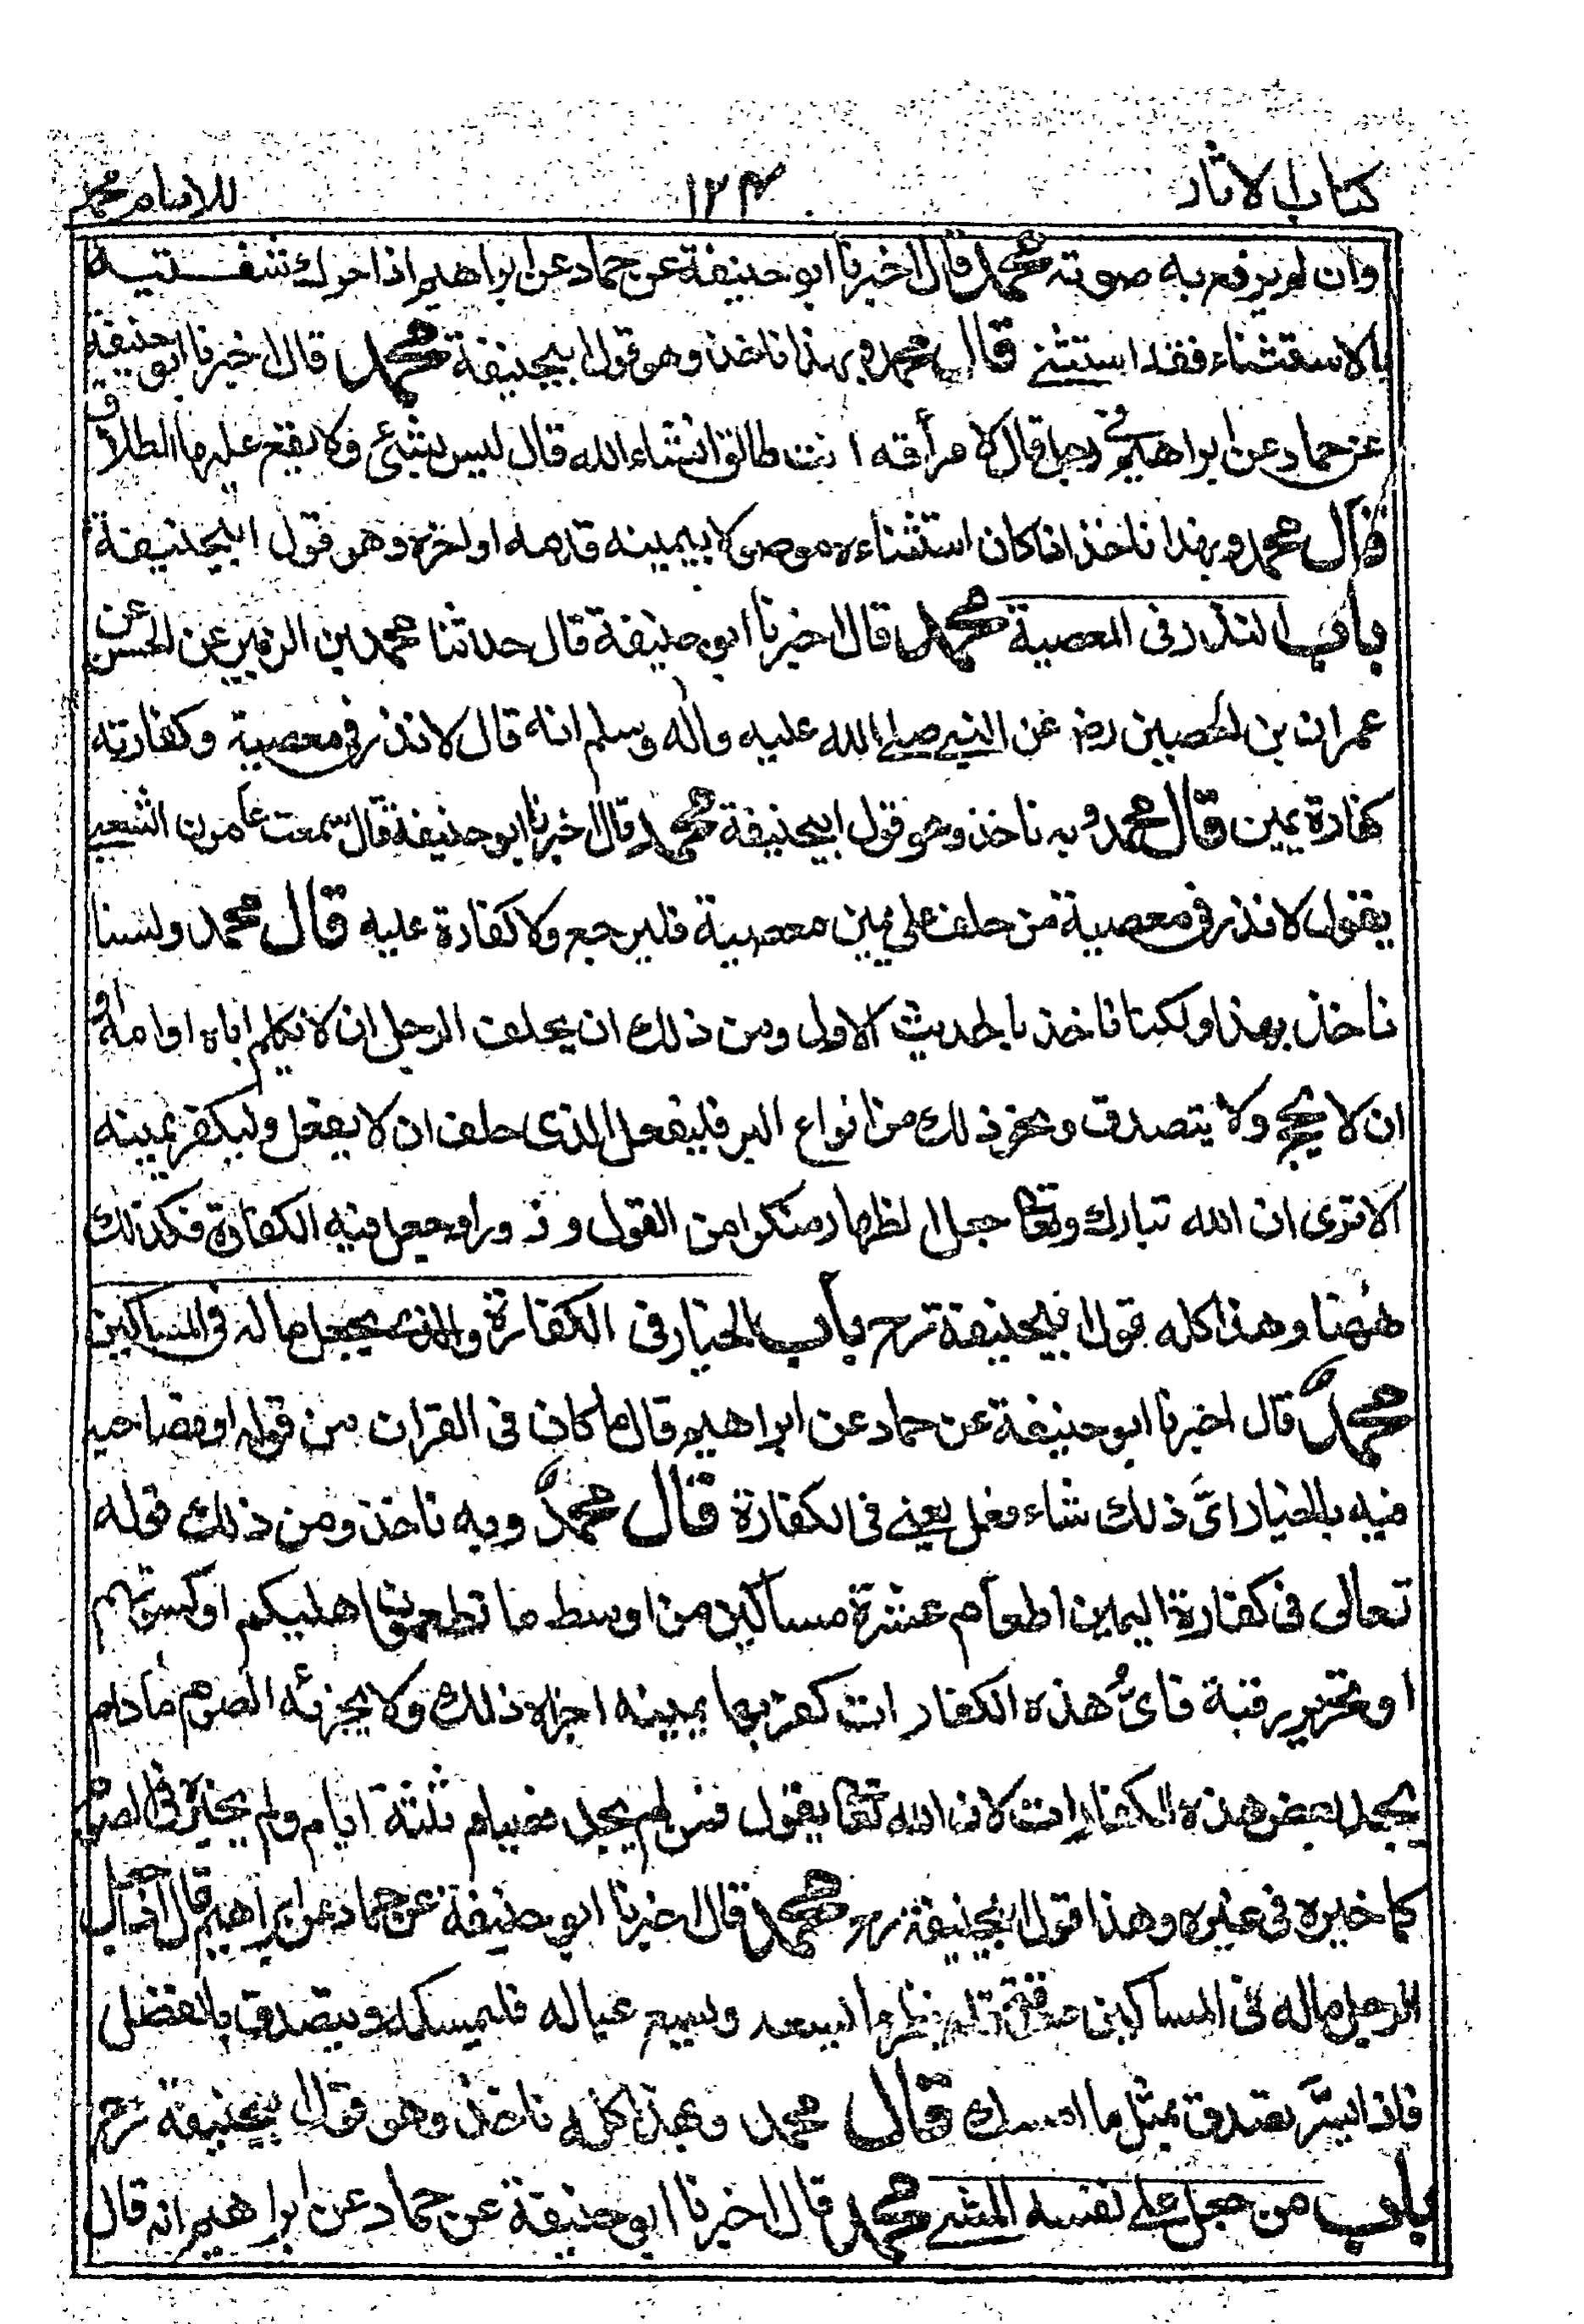 كتاب الاثار ١٢٣ للامام محمد
وان لم يرفع به صوته محمد قال اخبرنا ابو حنيفة عن حماد عن ابراهيم اذا حرك شفتيه
بالاستثناء فقد استثنى قال محمد وبهذا ناخذ وهو قول ابيحنيفة محمد قال اخبرنا ابو حنيفة
عن حماد عن ابراهيم في رجل قال لامرأته انت طالق انشاء الله قال ليس بشئ ولا يقع عليها الطلاق
قال محمد وبهذا ناخذ اذا كان استثناءه موصولا بيمينه قدمه او اخره وهو قول ابيحنيفة
باب النذر في المعصية محمد قال اخبرنا ابو حنيفة قال حدثنا محمد بن الزبير عن الحسن عن
عمران بن الحصين رض عن النبي صلى الله عليه واله وسلم انه قال لا نذر في معصية وكفارته
كفارة يمين قال محمد وبه ناخذ وهو قول ابيحنيفة محمد قال اخبرنا ابو حنيفة قال سمعت عامرن الشعبي
يقول لا نذر في معصية من حلف على يمين معصية فليرجع ولا كفارة عليه قال محمد ولسنا
ناخذ بهذا ولكنا ناخذ بالحديث الاول ومن ذلك ان يحلف الرجل ان لا يكلم اباه او امه او
ان لا يحج ولا يتصدق ونحو ذلك من انواع البر فليفعل الذى حلف ان لا يفعل وليكفر يمينه
الا ترى ان الله تبارك وتعا جعل الظهار منكرا من القول وزورا وجعل فيه الكفارة فكذلك
ههنا وهذا كله قول ابيحنيفة رح باب الخيار في الكفارة والذى يجعل ماله في المساكين
محمد قال اخبرنا ابو حنيفة عن حماد عن ابراهيم قال ما كان في القران من قوله او فصاحبه
فيه بالخيار اىّ ذلك شاء فعل يعني في الكفارة قال محمد وبه ناخذ ومن ذلك قوله
تعالى في كفارة اليمين اطعام عشرة مساكين من اوسط ما تطعمون اهليكم او كسوتهم
او تحرير رقبة فاىُّ هذه الكفارات كفر بها يمينه اجزاه ذلك ولا يجزئه الصوم ما دام
يجد بعض هذه الكفارات لان الله تعا يقول فمن لم يجد فصيام ثلثة ايام ولم يخيره في الصوم
كما خيره في غيره وهذا قول ابيحنيفة رح محمد قال اخبرنا ابو حنيفة عن حماد عن ابراهيم قال اذا جعل
الرجل ماله في المساكين صدقة فلينظر ما يسعه ويسع عياله فليمسكه وليتصدق بالفضل
فاذا ايسر تصدق بمثل ما امسك قال محمد وبهذا كله ناخذ وهو قول ابيحنيفة رح
باب من جعل على نفسه المشي محمد قال اخبرنا ابو حنيفة عن حماد عن ابراهيم انه قال